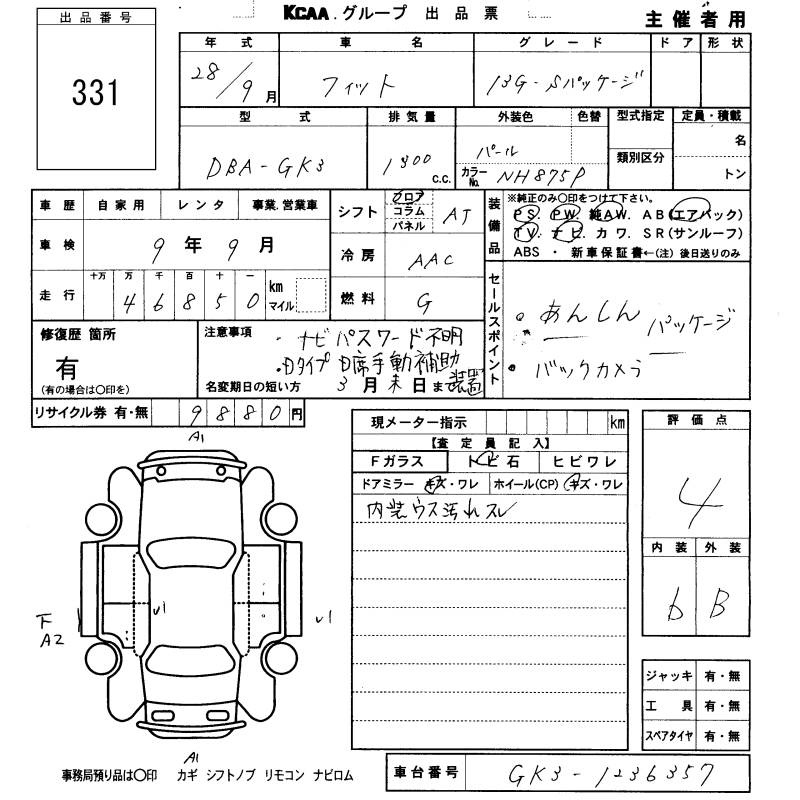 出品番号
KCAA.グループ 出品票
主催者用
331
年式 車名 グレード ドア 形状
28/9月 フィット 13G-Sパッケージ
型式 排気量 外装色 色替 型式指定 定員・積載
DBA-GK3 1300 c.c. パール カラーNo. NH875P 類別区分 名 トン
車歴 自家用 レンタ 事業.営業車 シフト フロア コラム パネル AT
車検 9年9月 冷房 AAC
走行 十万 万 千 百 十 一 km マイル 燃料 G
46850
装備品 ※純正のみ○印をつけて下さい。
PS. PW. 純AW. AB(エアバック)
TV. ナビ. カワ. SR(サンルーフ)
ABS ・ 新車保証書←(注) 後日送りのみ
セールスポイント
・あんしんパッケージ
・バックカメラ
修復歴 箇所 有 (有の場合は○印を)
注意事項
・ナビパスワード不明
・Dタイプ D席手動補助装置
名変期日の短い方 3月末日まで
リサイクル券 有・無 9880円
現メーター指示 km
【査定員記入】
Fガラス トビ石 ヒビワレ
ドアミラー キズ・ワレ ホイール(CP) キズ・ワレ
内装ウス汚れスレ
評価点
4
内装 外装
b B
A1
下
A2
U1
U1
A1
ジャッキ 有・無
工具 有・無
スペアタイヤ 有・無
事務局預り品は○印 カギ シフトノブ リモコン ナビロム
車台番号 GK3-1236357